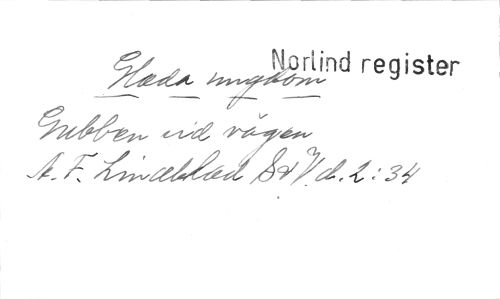 Norlind register
Glada ungdom
Gubben vid vägen
A. F. Lindblad S d. 2:34